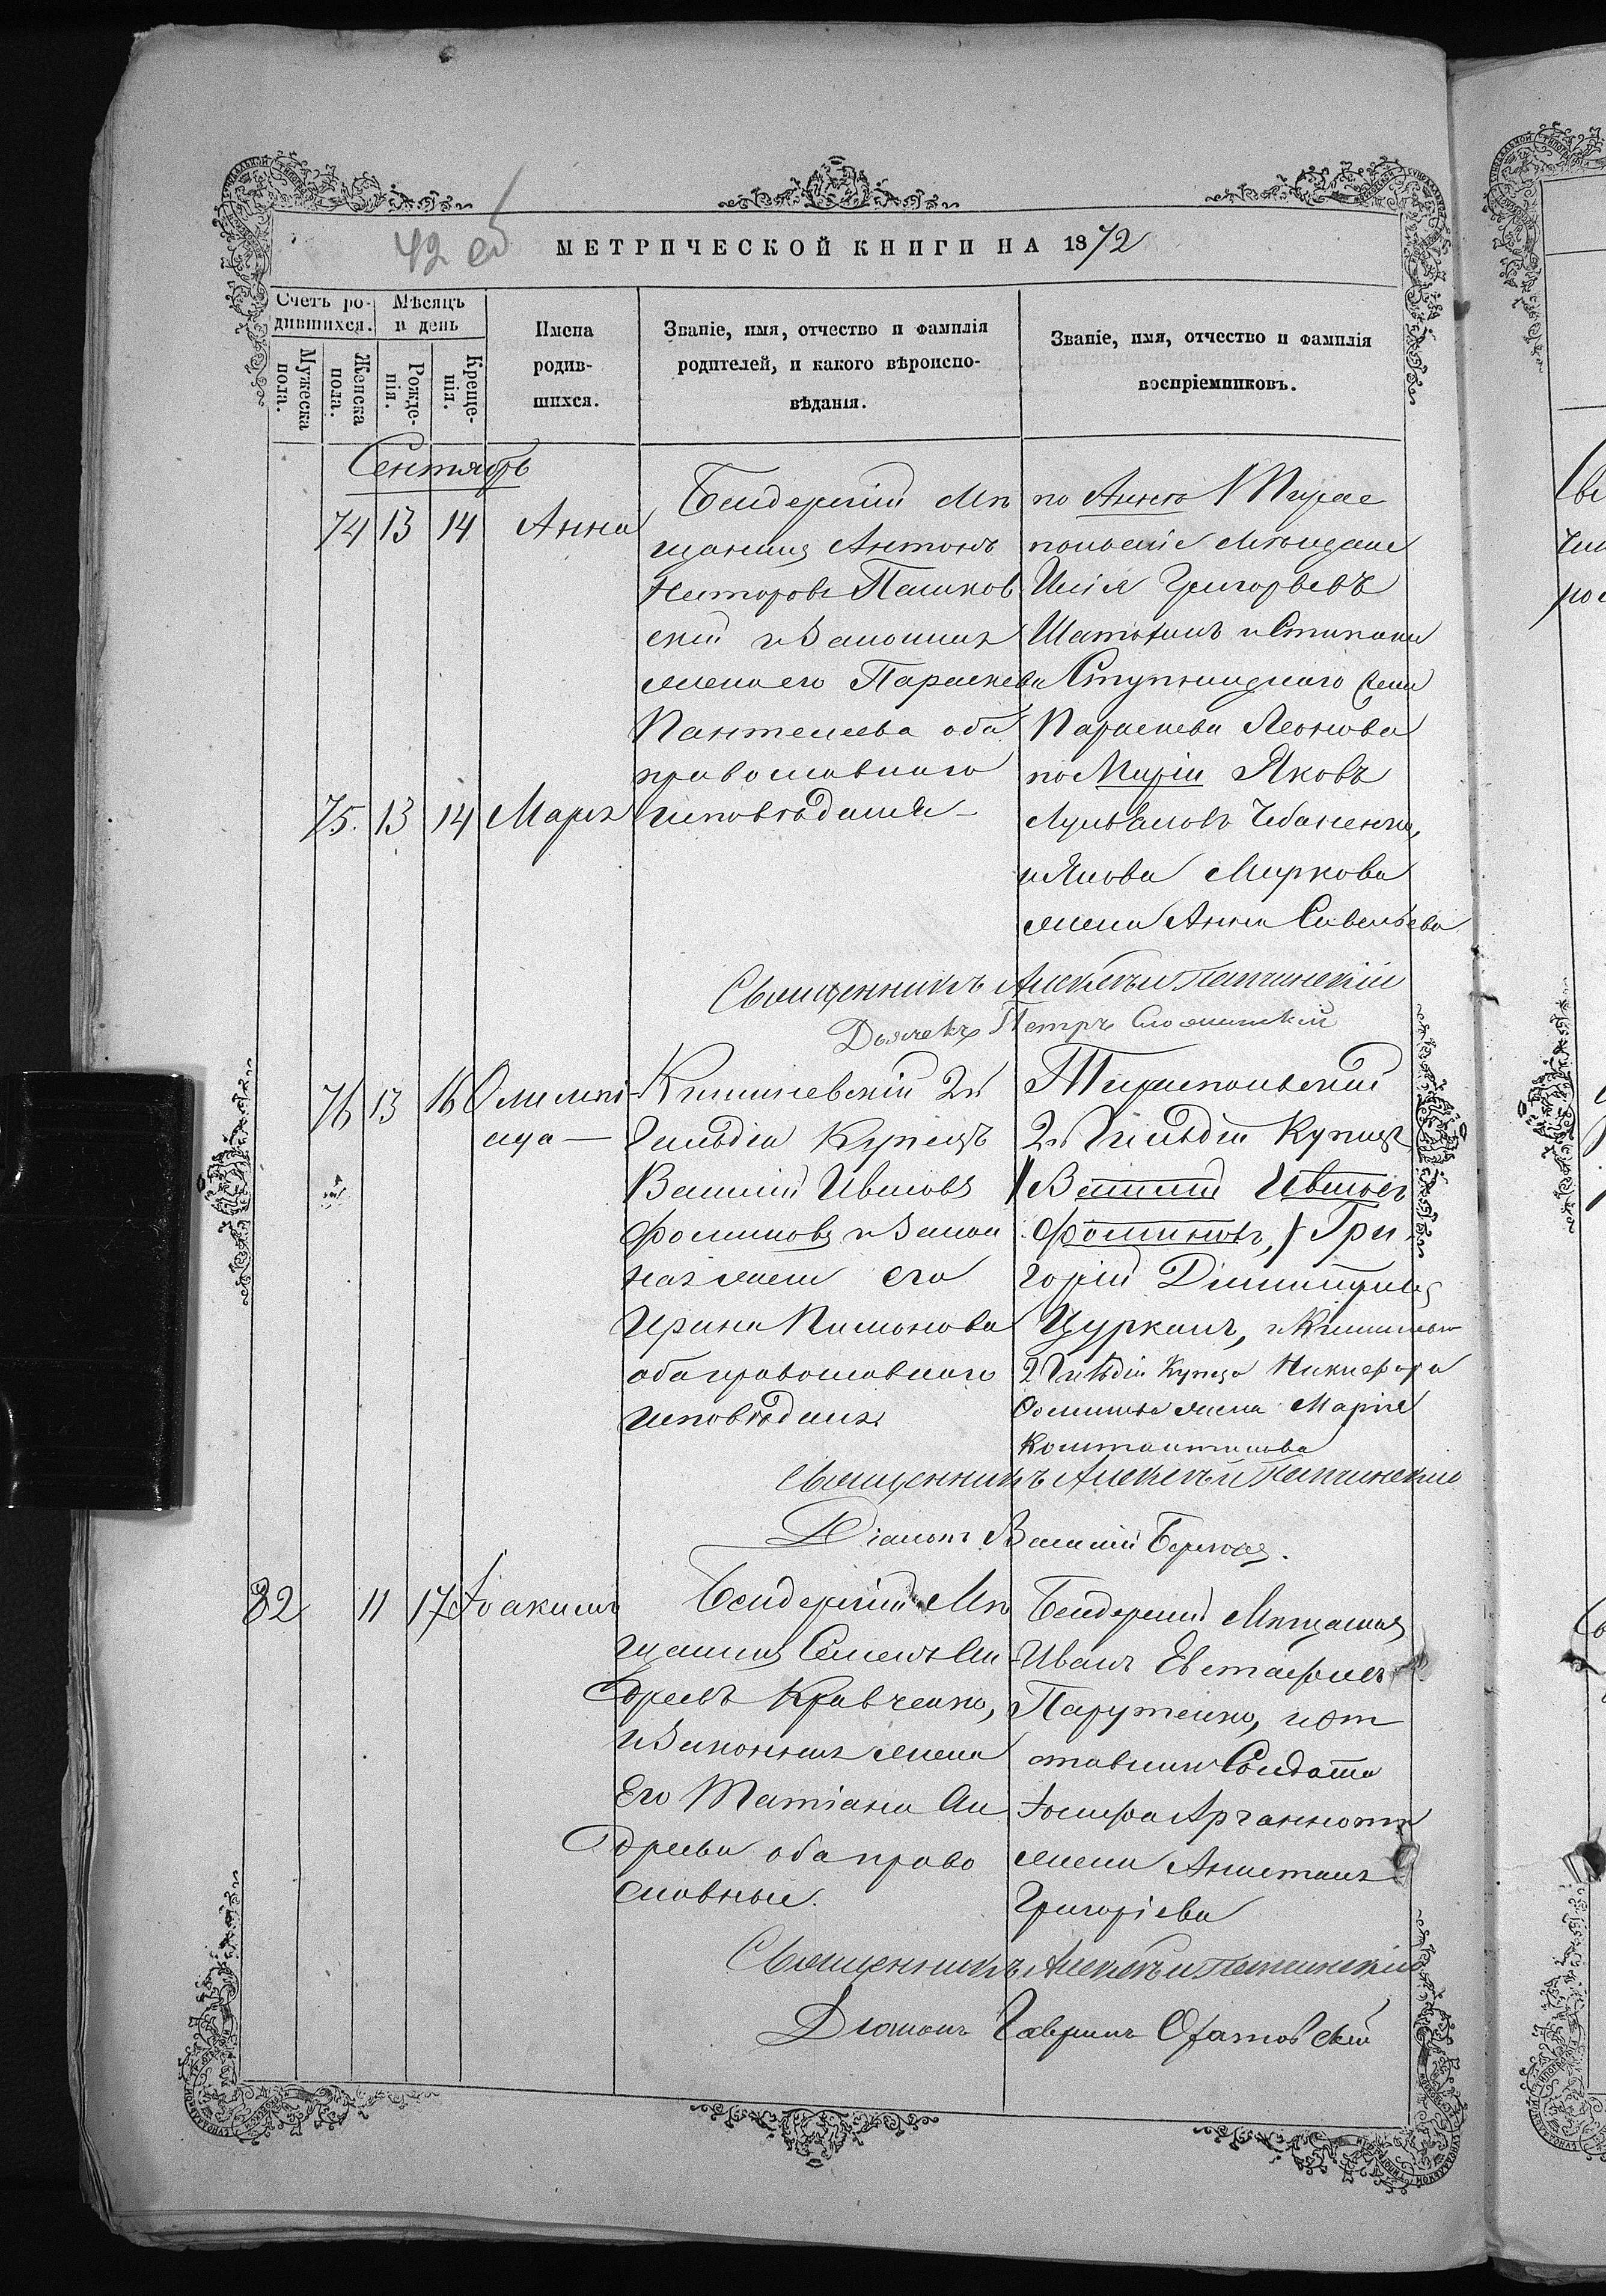 42 об
МЕТРИЧЕСКОЙ КНИГИ НА 1872
Счетъ ро-
дившихся.
Мѣсяцъ
и день
Мужеска
пола.
Женска
пола.
Рожде-
нія.
Креще-
нія.
Имена
родив-
шихся.
Званіе, имя, отчество и фамилія
родителей, и какого вѣроиспо-
вѣданія.
Званіе, имя, отчество и фамилія
воспріемниковъ.
Сентябрь
74 13 14 Анна
Бендерскій Мѣ
щанинъ Антонъ
Несторовъ Пашков
скій и Законная
жена его Параскева
Пантелеева оба
православнаго
75. 13 14 Марія
исповѣданія
по Аннѣ Тирас
польскіе Мѣщане
Илія Григорьевъ
и Степана
Ступницкаго жена
Параскева Леонова
по Маріи Яковъ
Чебаненко,
и Якова Миркова
жена Анна Савельева
Священникъ Алексѣй
Дьячекъ Петръ
76 13 16 Олимпі
ада
Кишиневскій 2й
Гильдіи Купецъ
Василій Ивановъ
Фоминовъ и Закон
ная жена его
Ирина Пимонова
оба православнаго
исповѣданія
Тираспольскій
2й Гильдіи Купецъ
Василій Ивановъ
Фоминовъ, Гри
горій Димитріевъ
Цурканъ, и
2 Гильдіи Купца Никифора
Фоминова жена Марія
Константинова
Священникъ Алексѣй
Діаконъ Василій
32 11 17 Іоакимъ
Бендерскій Мѣ
щанинъ Семенъ Ан
дреевъ Кравченко,
и Законная жена
Его Татіана Ан
дреева оба право
славные.
Бендерскій Мѣщанинъ
Иванъ Евстафіевъ
Парутенко, и от
ставнаго Солдата
Іосифа
жена Анастасія
Григоріева
Священникъ Алексѣй
Діаконъ Гавріилъ